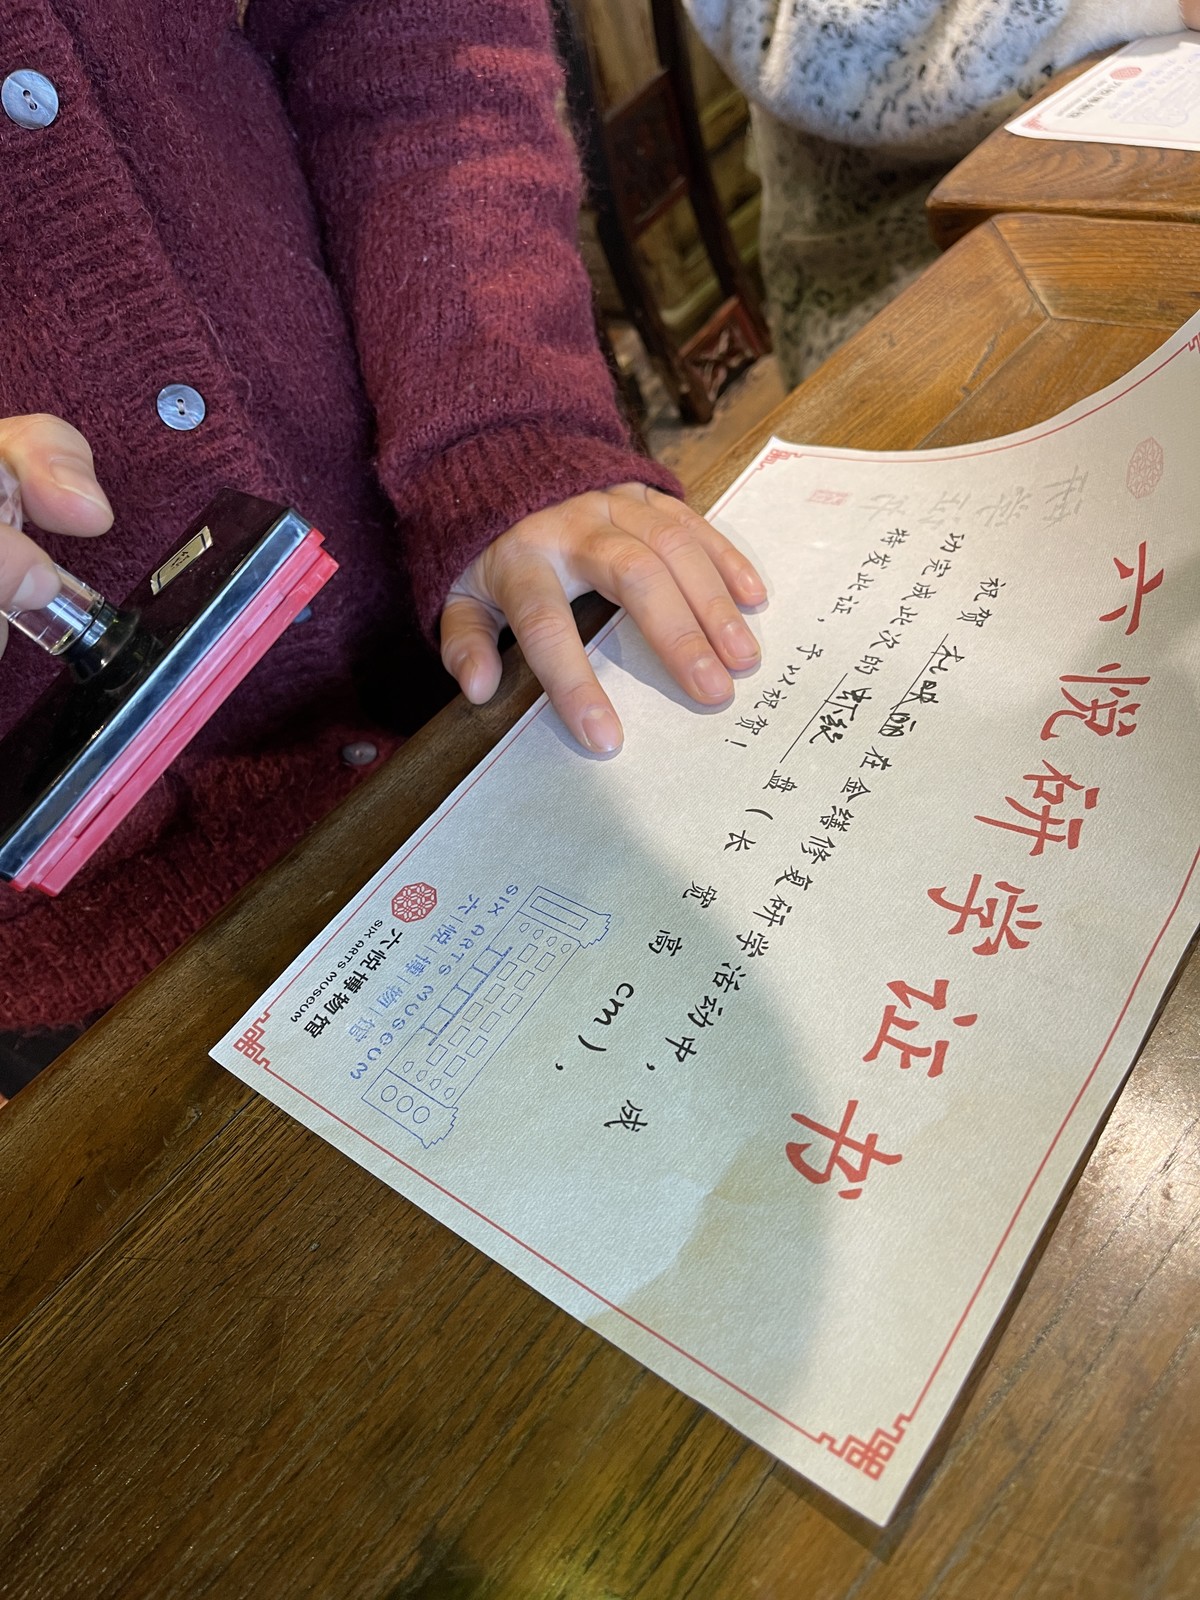 六悦研学证书
祝贺 在金缮修复研学活动中，成
功完成此次的 彩瓷 盘（长 宽 高 cm），
特发此证，予以祝贺！
六悦博物馆
SIX ARTS MUSEUM
SIX ARTS MUSEUM
六|悦|博|物|馆